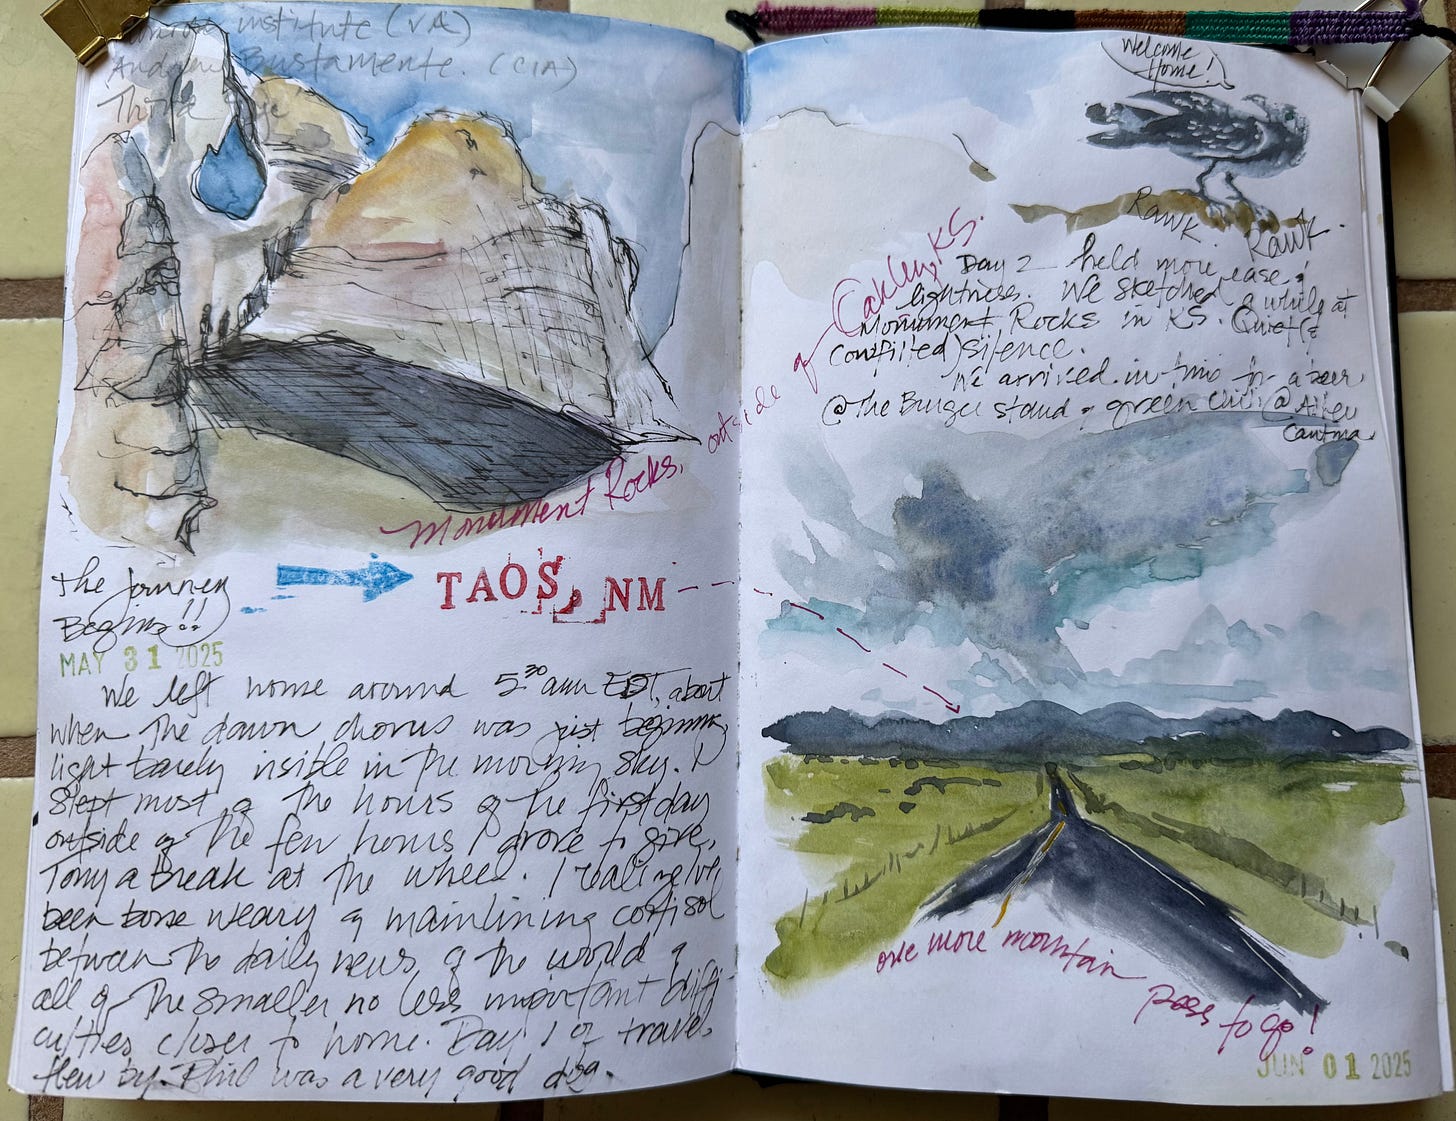 institute (VA)
Bustamente. (CIA)
Monument Rocks, outside of Oakley, KS.
The Journey
Begins!!
TAOS, NM
MAY 31 2025
We left home around 5:30 am EDT, about
when the dawn chorus was just beginning,
light barely visible in the morning sky. I
slept most of the hours of the first day
outside of the few hours I drove to give
Tony a break at the wheel. I realize I've
been bone weary & mainlining cortisol
between the daily news of the world &
all of the smaller no less important diffi-
culties closer to home. Day 1 of travel
flew by. Phil was a very good dog.
Welcome
Home!
Rawk. Rawk.
Day 2 held more ease &
lightness. We sketched a while at
Monument Rocks in KS. Quiet (&
) silence.
We arrived in time for a beer
@ The Burger Stand & green chili @
Cantina.
one more mountain
pass to go!
JUN 01 2025